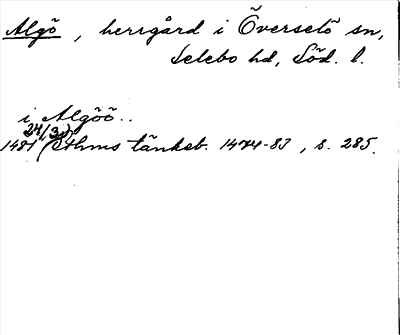 Algö, herrgård i Överselö sn,
Selebo hd, Söd. l.
i Algöö..
24/3
1481 (Sthms tänkeb. 1474-83, s. 285.